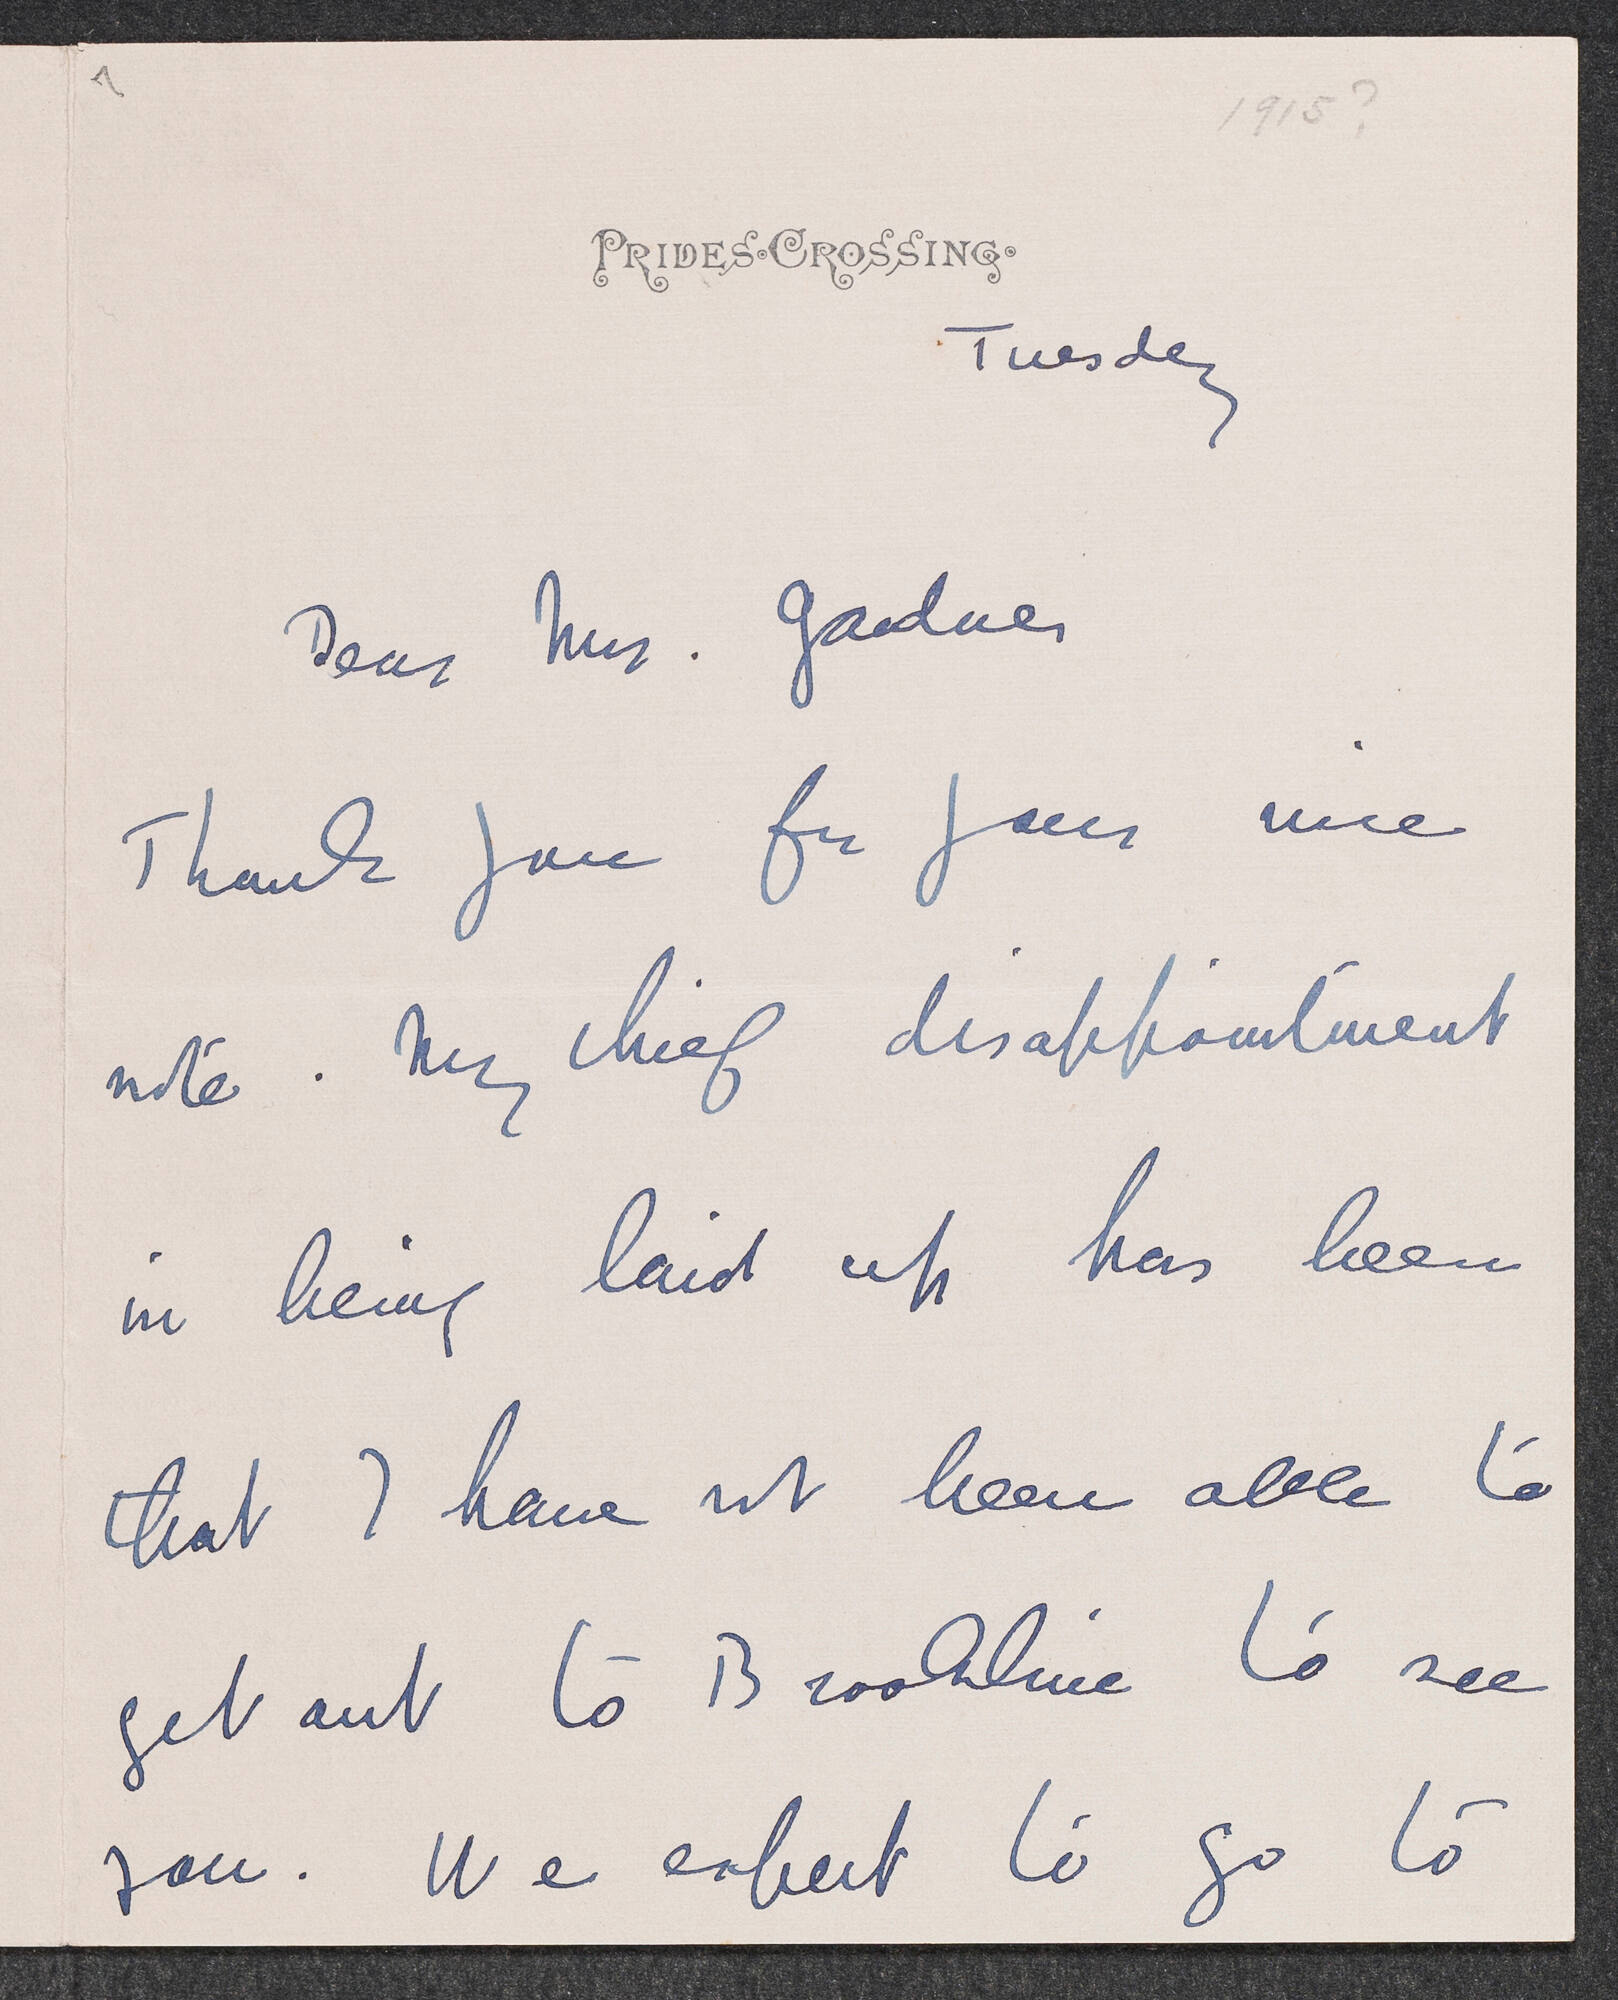 1915?
PRIDES·CROSSING·
Tuesday
Dear Mrs. Gardner
Thank you for your nice
note. My chief disappointment
in being laid up has been
that I have not been able to
get out to Brookline to see
you. We expect to go to